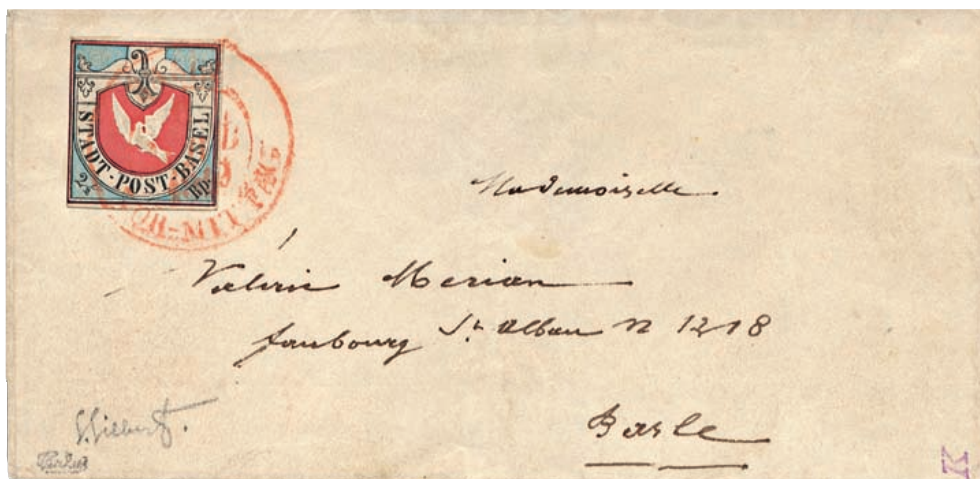 STADT-POST-BASEL
2½ Rp.
VOR-MITTAG
Mademoiselle
Valérie Merian
faubourg St. Alban N 1218
Basle
K